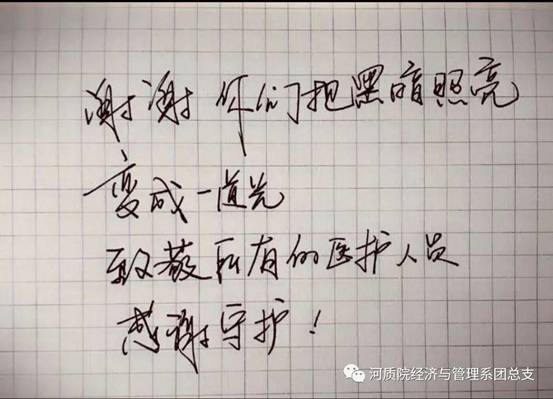 谢谢 你们把黑暗照亮
变成一道光
致敬所有的医护人员
感谢守护！
河质院经济与管理系团总支